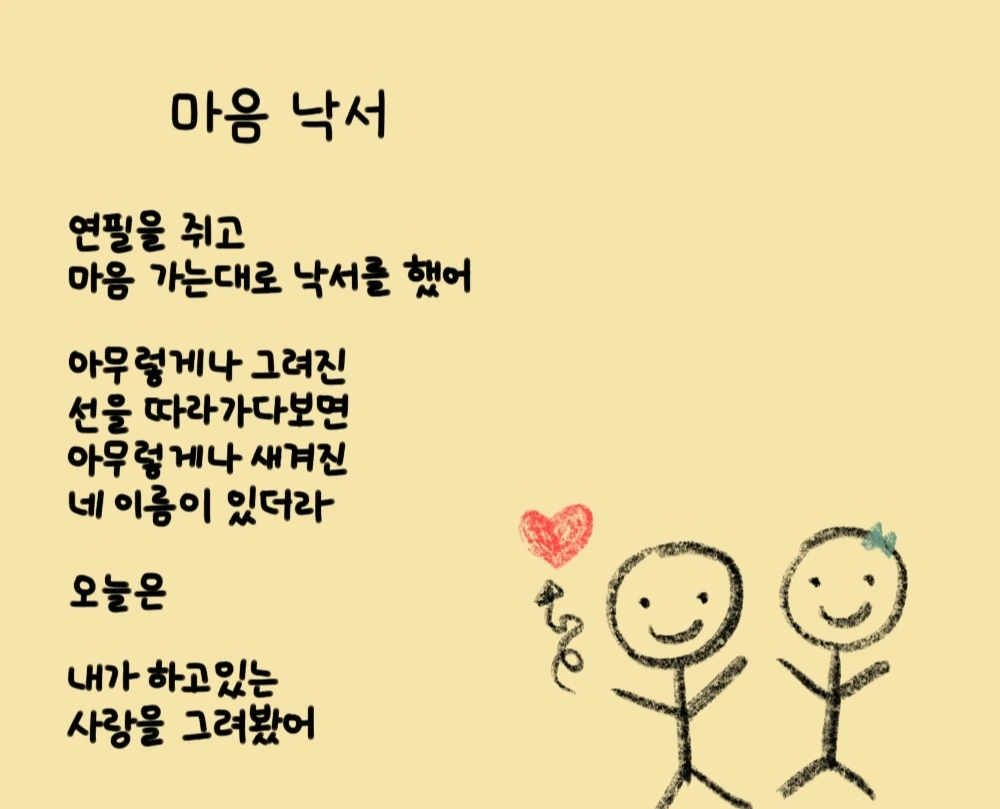 마음 낙서
연필을 쥐고
마음 가는대로 낙서를 했어
아무렇게나 그려진
선을 따라가다보면
아무렇게나 새겨진
네 이름이 있더라
오늘은
내가 하고있는
사랑을 그려봤어